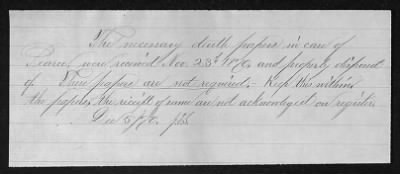 The necessary death papers in case of
Pearce, were received Nov. 23d 1876, and properly disposed
of. These papers are not required. - Keep this within
the papers, the receipt of same are not acknowledged on register
Dec 5/76.